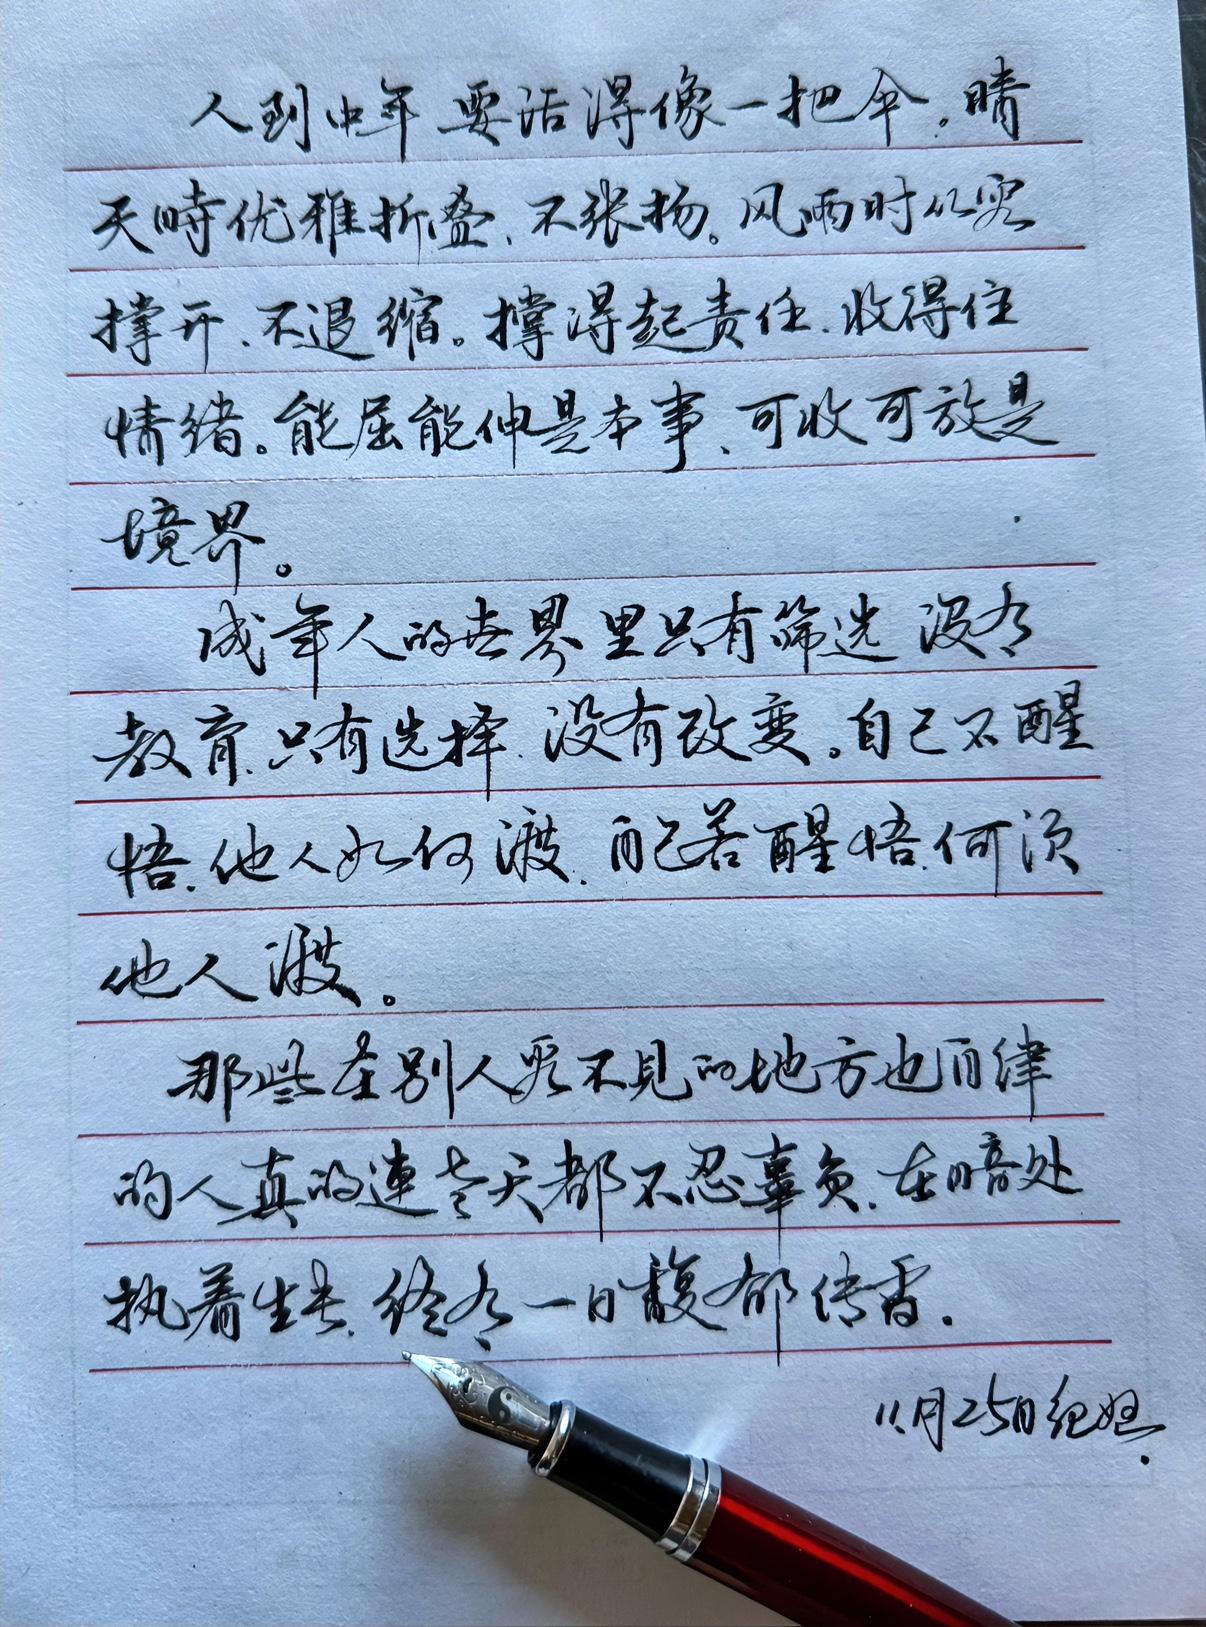 人到中年 要活得像一把伞。晴
天時优雅折叠、不张扬。风雨时从容
撑开、不退缩。撑得起责任、收得住
情绪。能屈能伸是本事、可收可放是
境界。
成年人的世界里只有筛选 没有
教育、只有选择、没有改变。自己不醒
悟、他人如何渡、自己若醒悟、何须
他人渡。
那些在别人看不见的地方也自律
的人真的連老天都不忍辜负、在暗处
执着生长、终有一日馥郁传香.
11月25日